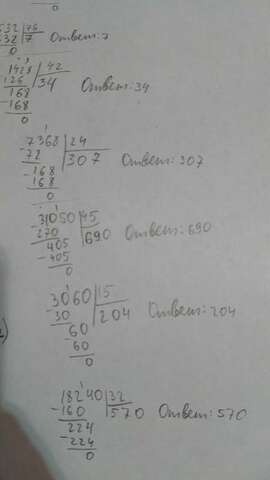 532 | 76
532 | 7 Ответ: 7
0
1428 | 42
126 | 34 Ответ: 34
168
-168
0
-7368 | 24
72 | 307 Ответ: 307
-168
168
0
-31050 | 45
270 | 690 Ответ: 690
-405
405
0
-3060 | 15
30 | 204 Ответ: 204
-60
60
0
-18240 | 32
160 | 570 Ответ: 570
-224
224
0